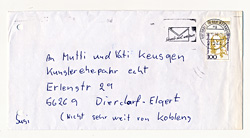 An Mutti und Vati Keusgen
Künstlerehepaar echt
Erlenstr 29
56269 Dierdorf-Elgert
(Nicht sehr weit von Koblenz
100